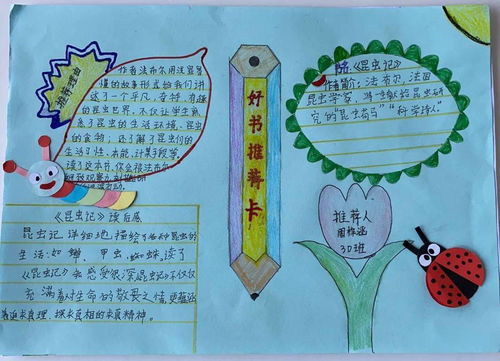 推荐理由
作者法布尔用浅显易
懂的故事形式给我们讲
述了一个平凡、奇特、有趣
的昆虫世界,不仅让学生
了解了昆虫的生活环境、昆虫
的食物;还了解了昆虫们的
生活习性、本能、
读了这本书,你会被法布尔
好书推荐卡
《昆虫记》
作者简介:法布尔,法国
昆虫学家,
究的“昆虫荷马”“科学诗人”
推荐人
3D班
《昆虫记》读后感
昆虫记,详细地描绘了各种昆虫的
生活:如蝉、甲虫、蜘蛛,读了
《昆虫记》我感受很深,昆虫记不仅仅
充满着对生命的敬畏之情,更蕴涵
着追求真理、探求真相的求真精神。